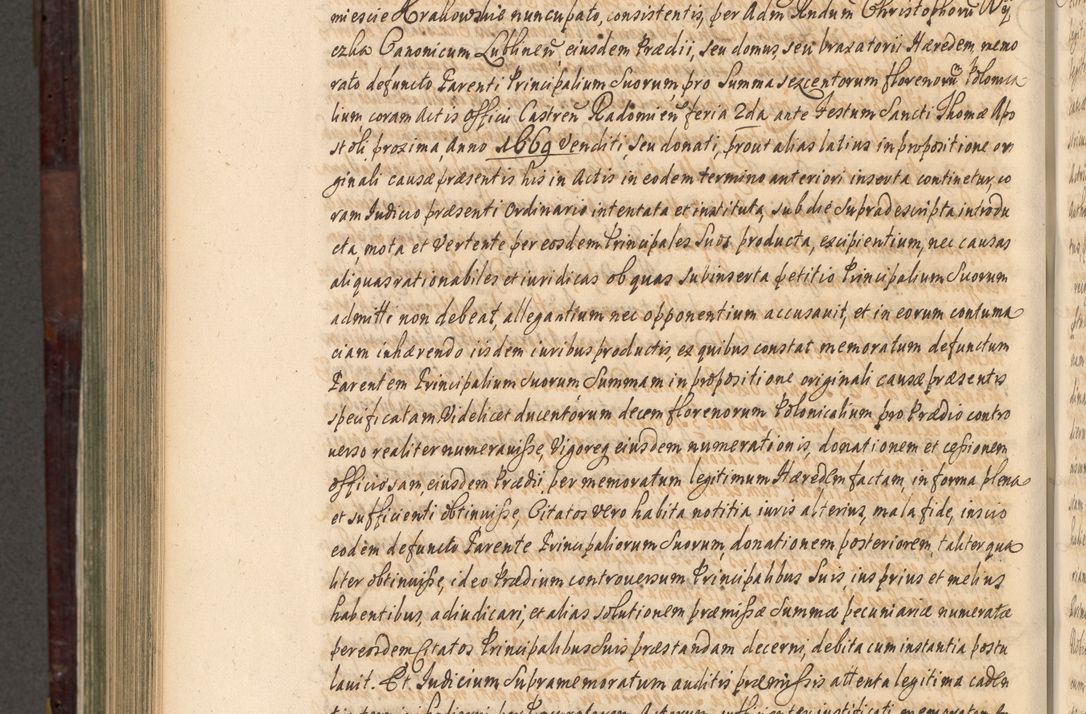 miescie Krakowskie nuncupato, consistentis, per Adm Rndum Christophorū Wy
czka Canonicum Lublinen̄, eiusdem Prædii, seu domus, seu braxatorii Hæredem, memo
rato defuncto Parenti Principalium Suorum pro Summa sexcentorum florenorū Polonica
lium coram Actis Officii Castren̄ Radomien̄ feria 2da ante Festum Sancti Thomæ Apo
stoli proxima, Anno 1669 Venditi, seu donati, prout alias latius in propositione ori
ginali causæ præsentis his in Actis in eodem termino anteriori inserta continetur, co
ram Judicio præsenti Ordinario intentata et instituta, sub die supradescripta introdu
cta, mota et Vertente per eosdem Principales Suos producta, excipientium, nec causas
aliquas rationabiles et iuridicas ob quas subinserta petitio Principalium Suorum
admitti non debeat, allegantium nec opponentium accusauit, et in eorum contuma
ciam inhærendo iisdem iuribus productis, ex quibus constat memoratum defunctum
Parentem Principalium Suorum Summam in propositione originali causæ præsentis
specificatam Videlicet ducentorum decem florenorum Polonicalium pro Prædio contro
uerso realiter numerauisse, Vigoreq eiusdem numerationis, donationem et cessionem
officiosam eiusdem Prædii, per memoratum legitimum Hæredem factam, in forma plena
et sufficienti obtinuisse, Citatos vero habita notitia iuris alterius, mala fide, inscio
eodem defuncto Parente Principaliorum Suorum, donationem posteriorem, taliter qua
liter obtinuisse, ideo Prædium controuersum Principalibus Suis ius prius et melius
habentibus, adiudicari, et alias solutionem præmissæ Summæ pecuniariæ numeratæ
per eosdem Citatos Principalibus Suis præstandam decerni, debita cum instantia postu
lauit. Et Judicium Supramemoratum auditis præmissis attenta legitima caden